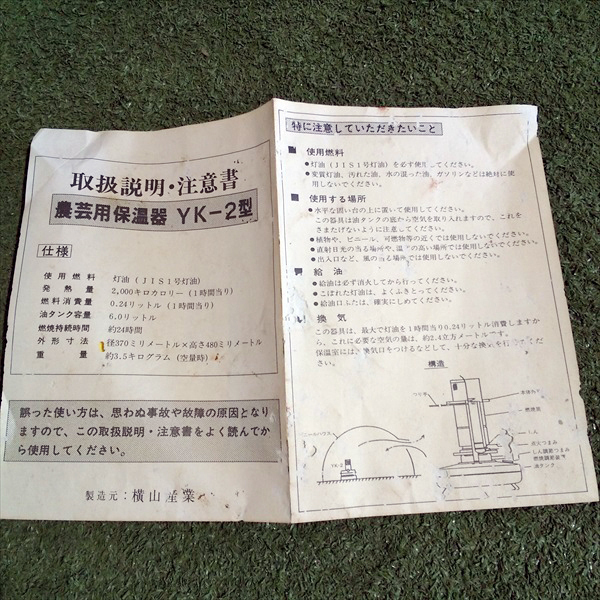 取扱説明・注意書
農芸用保温器 YK-2型
仕様
使用燃料 灯油(JIS1号灯油)
発熱量 2,000キロカロリー(1時間当り)
燃料消費量 0.24リットル(1時間当り)
油タンク容量 6.0リットル
燃焼持続時間 約24時間
外形寸法 径370ミリメートル×高さ480ミリメートル
重量 約3.5キログラム(空量時)
誤った使い方は、思わぬ事故や故障の原因となり
ますので、この取扱説明・注意書をよく読んでか
ら使用してください。
製造元:横山産業
特に注意していただきたいこと
■ 使用燃料
●灯油(JIS1号灯油)を必ず使用してください。
●変質灯油、汚れた油、水の混った油、ガソリンなどは絶対に使
用しないでください。
■ 使用する場所
●水平な固い台の上に置いて使用してください。
この器具は油タンクの底から空気を取り入れますので、これを
さまたげないように注意してください。
●植物や、ビニール、可燃物等の近くでは使用しないでください。
●直射日光の当る場所や、温度の高い場所では使用しないでください。
●出入口など、風の当る場所では使用しないでください。
■ 給油
●給油は必ず消火してから行ってください。
●こぼれた灯油は、よくふきとってください。
●給油口ぶたは、確実にしめてください。
換気
この器具は、最大で灯油を1時間当り0.24リットル消費しますか
ら、これに必要な空気の量は、約2.4立方メートルです。
保温室には、換気口をつけるなどして、十分な換気を行ってください。
構造
つり手
本体外
燃焼筒
しん
点火つまみ
しん調節つまみ
油タンク
ニールハウス
YK-2